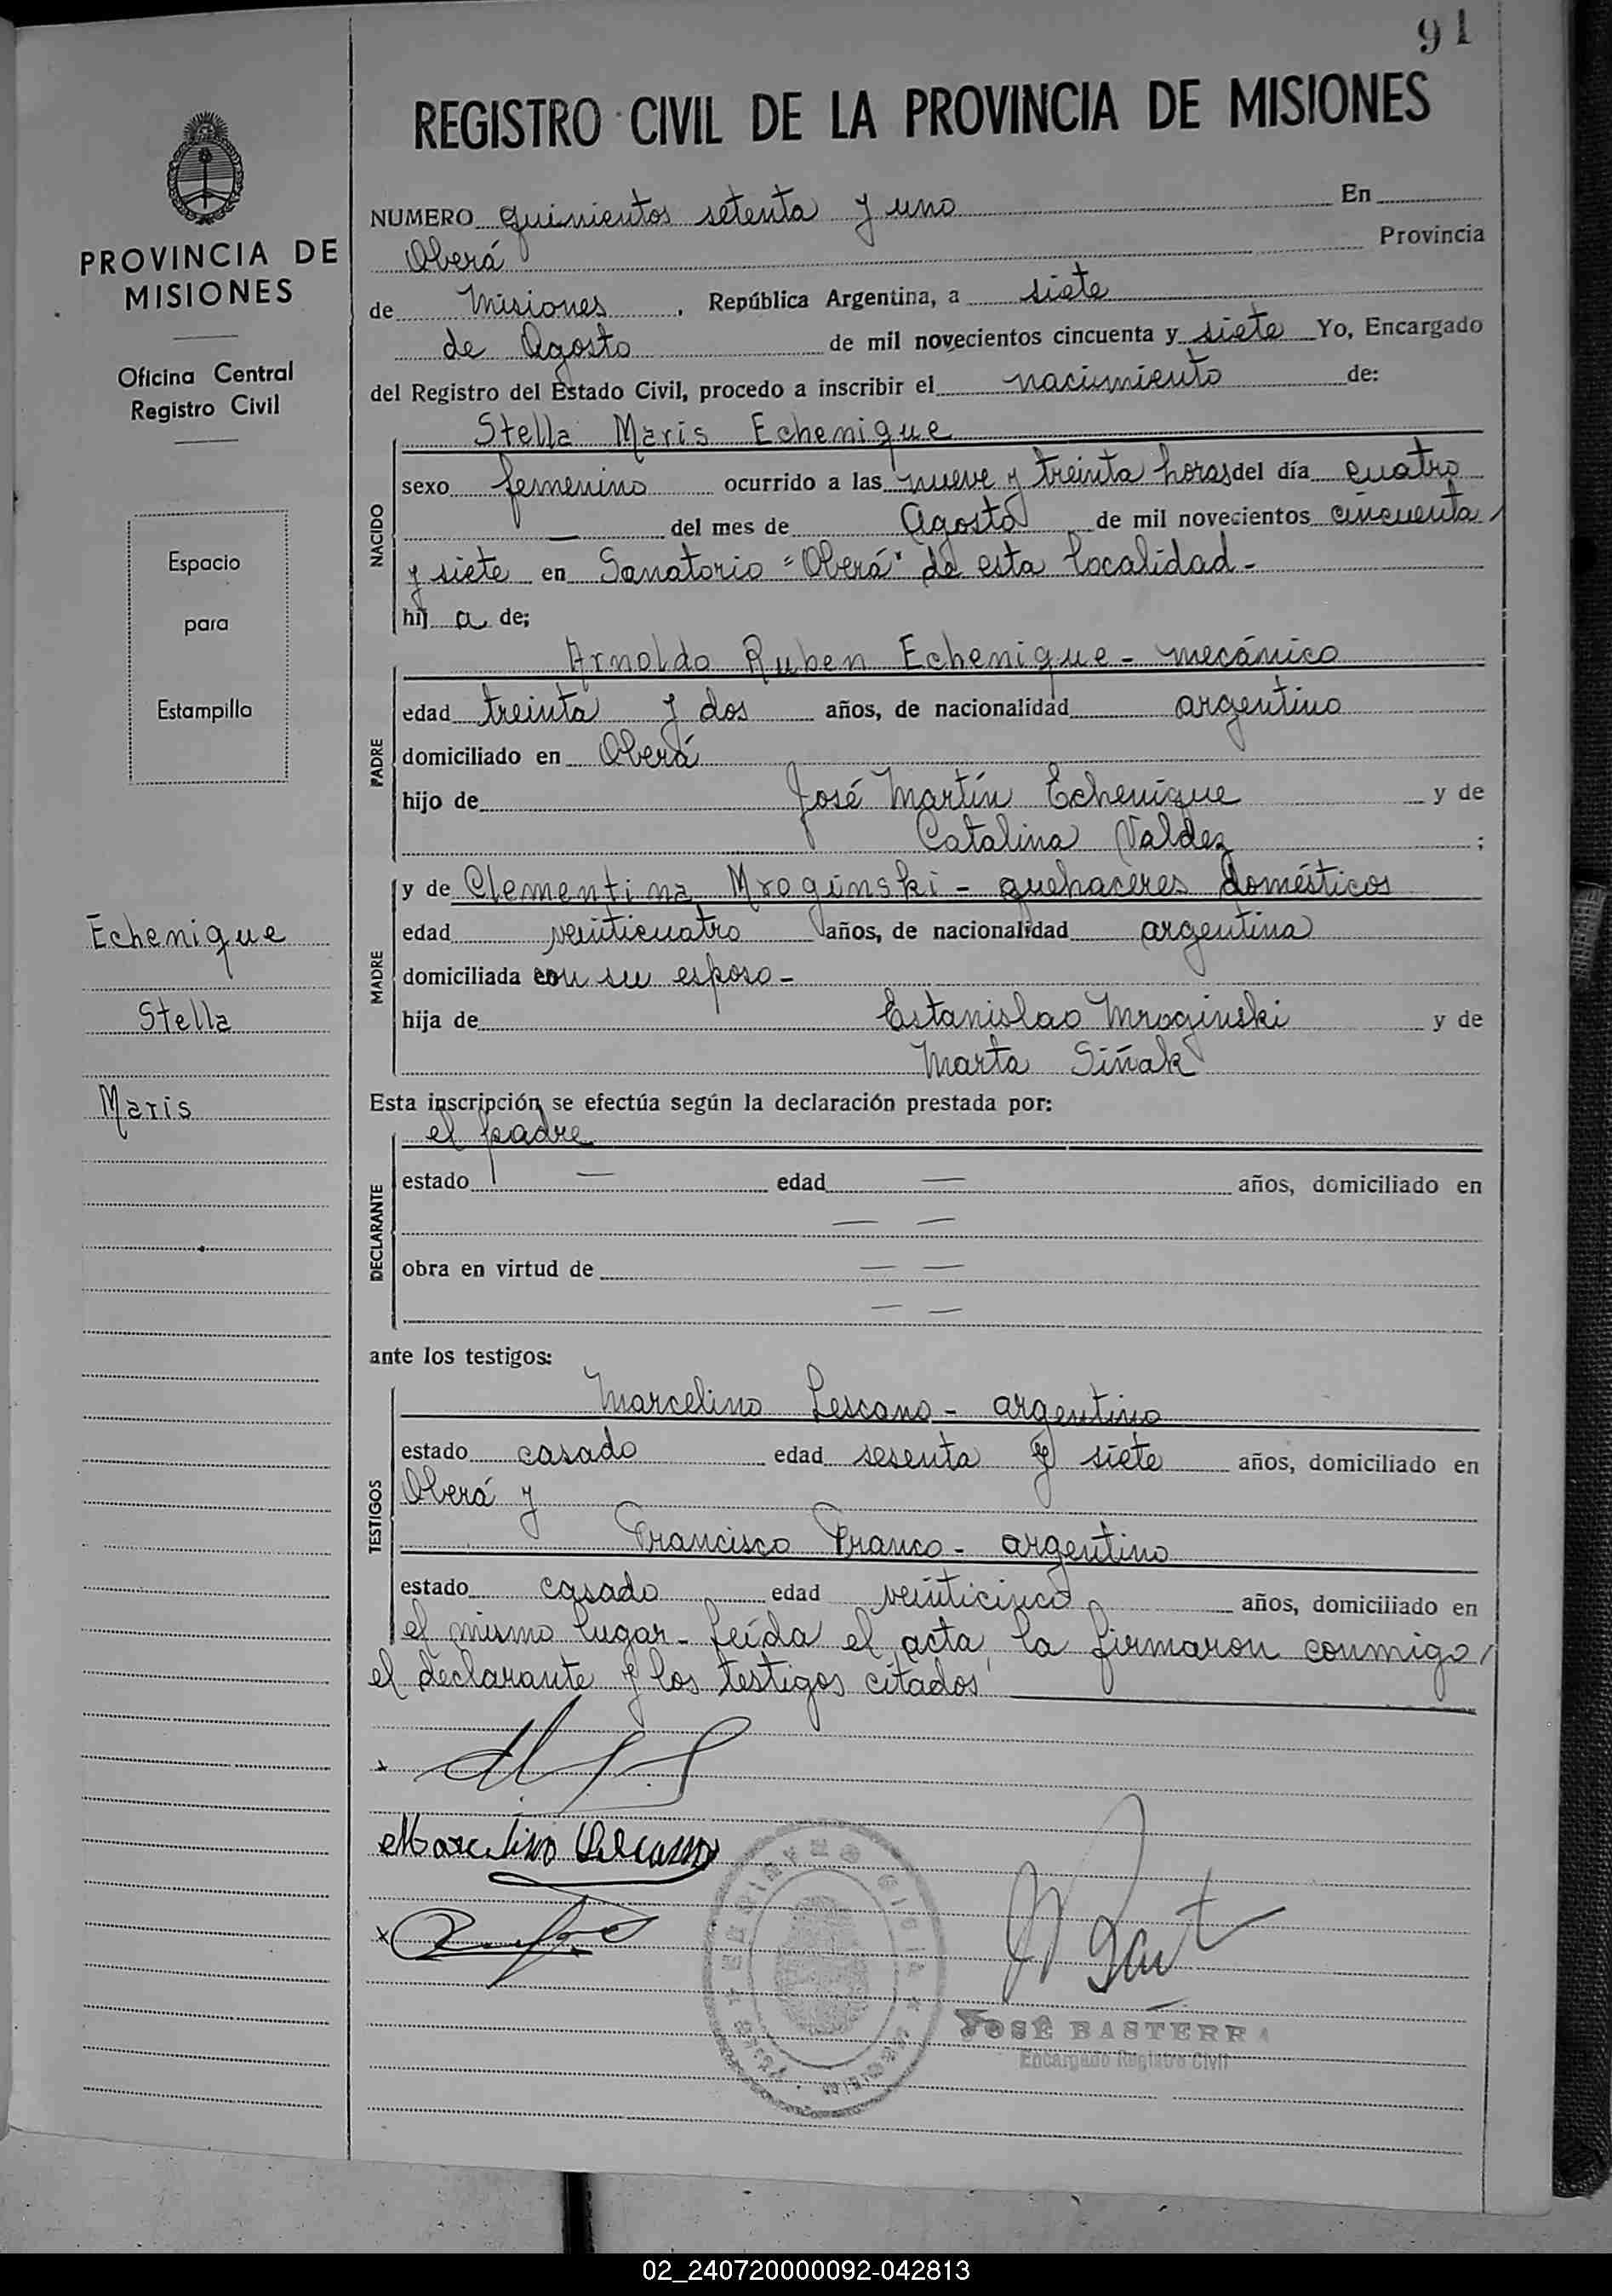 91
REGISTRO CIVIL DE LA PROVINCIA DE MISIONES
PROVINCIA DE
MISIONES
Oficina Central
Registro Civil
Espacio
para
Estampilla
Echenique
Stella
Maris
NUMERO quinientos setenta y uno En
Oberá Provincia
de Misiones, República Argentina, a siete
de Agosto de mil novecientos cincuenta y siete Yo, Encargado
del Registro del Estado Civil, procedo a inscribir el nacimiento de:
NACIDO
Stella Maris Echenique
sexo femenino ocurrido a las nueve y treinta horas del día cuatro
— del mes de Agosto de mil novecientos cincuenta
y siete en Sanatorio "Oberá" de esta localidad-
hij a de;
PADRE
Arnoldo Ruben Echenique - mecánico
edad treinta y dos años, de nacionalidad argentino
domiciliado en Oberá
hijo de José Martín Echenique y de
Catalina Valdez ;
MADRE
y de Clementina Mroginski - quehaceres domésticos
edad veinticuatro años, de nacionalidad argentina
domiciliada con su esposo-
hija de Estanislao Mroginski y de
Marta Siñak
Esta inscripción se efectúa según la declaración prestada por:
DECLARANTE
el padre
estado — edad — años, domiciliado en
— —
obra en virtud de — —
— —
ante los testigos:
TESTIGOS
Marcelino Lescano - argentino
estado casado edad sesenta y siete años, domiciliado en
Oberá y
Francisco Franco - argentino
estado casado edad veinticinco años, domiciliado en
el mismo lugar- Leída el acta, la firmaron conmigo,
el declarante y los testigos citados
Marcelino Lescano
JOSÉ BASTERRA
Encargado Registro Civil
02_240720000092-042813